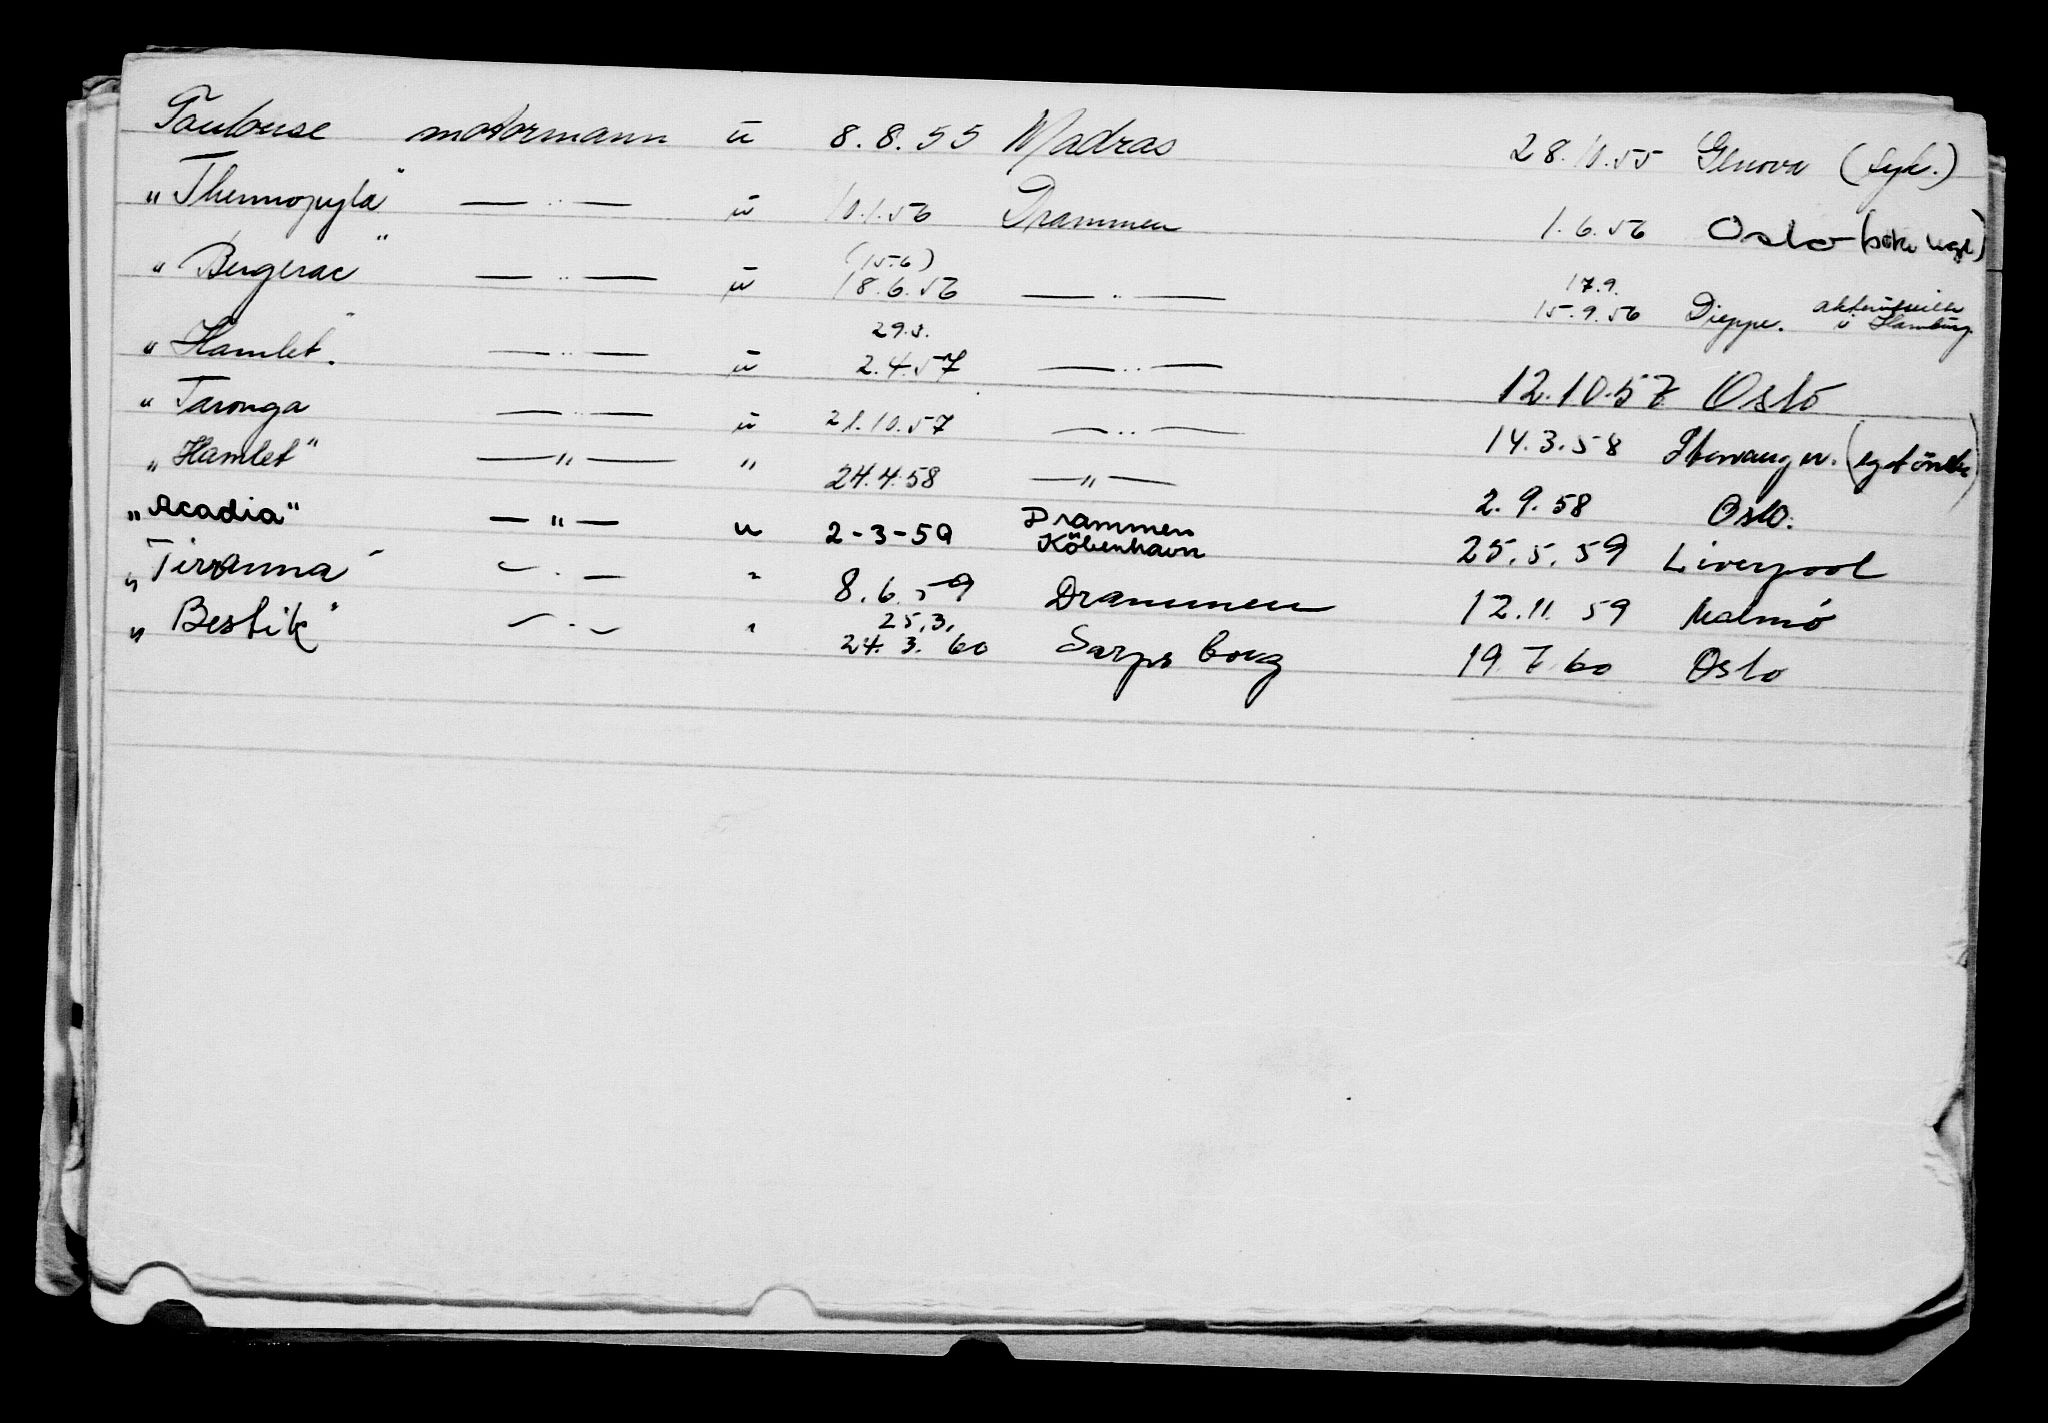 Toulouse motormann u 8.8.55 Madras 28.10.55 Genova (syk.)
"Thermopylä" — " — u 10.1.56 Drammen 1.6.56 Oslo
(15.6) 17.9.
"Bergerac" — " — u 18.6.56 — " — 15.9.56 Dieppe. i Hamburg
29.3.
"Hamlet". — " — u 2.4.57 — " — 12.10.57 Oslo
"Taronga — " — u 21.10.57 — " — 14.3.58 Stavanger. (eget önske)
"Hamlet" — " — " 24.4.58 — " — 2.9.58 Oslo.
"Acadia" — " — u 2-3-59 Drammen
Köbenhavn 25.5.59 Liverpool
"Tirranna" — " — " 8.6.59 Drammen 12.11.59 Malmö
25.3.
"Bestik" — " — " 24.3.60 Sarpsborg 19.7.60 Oslo